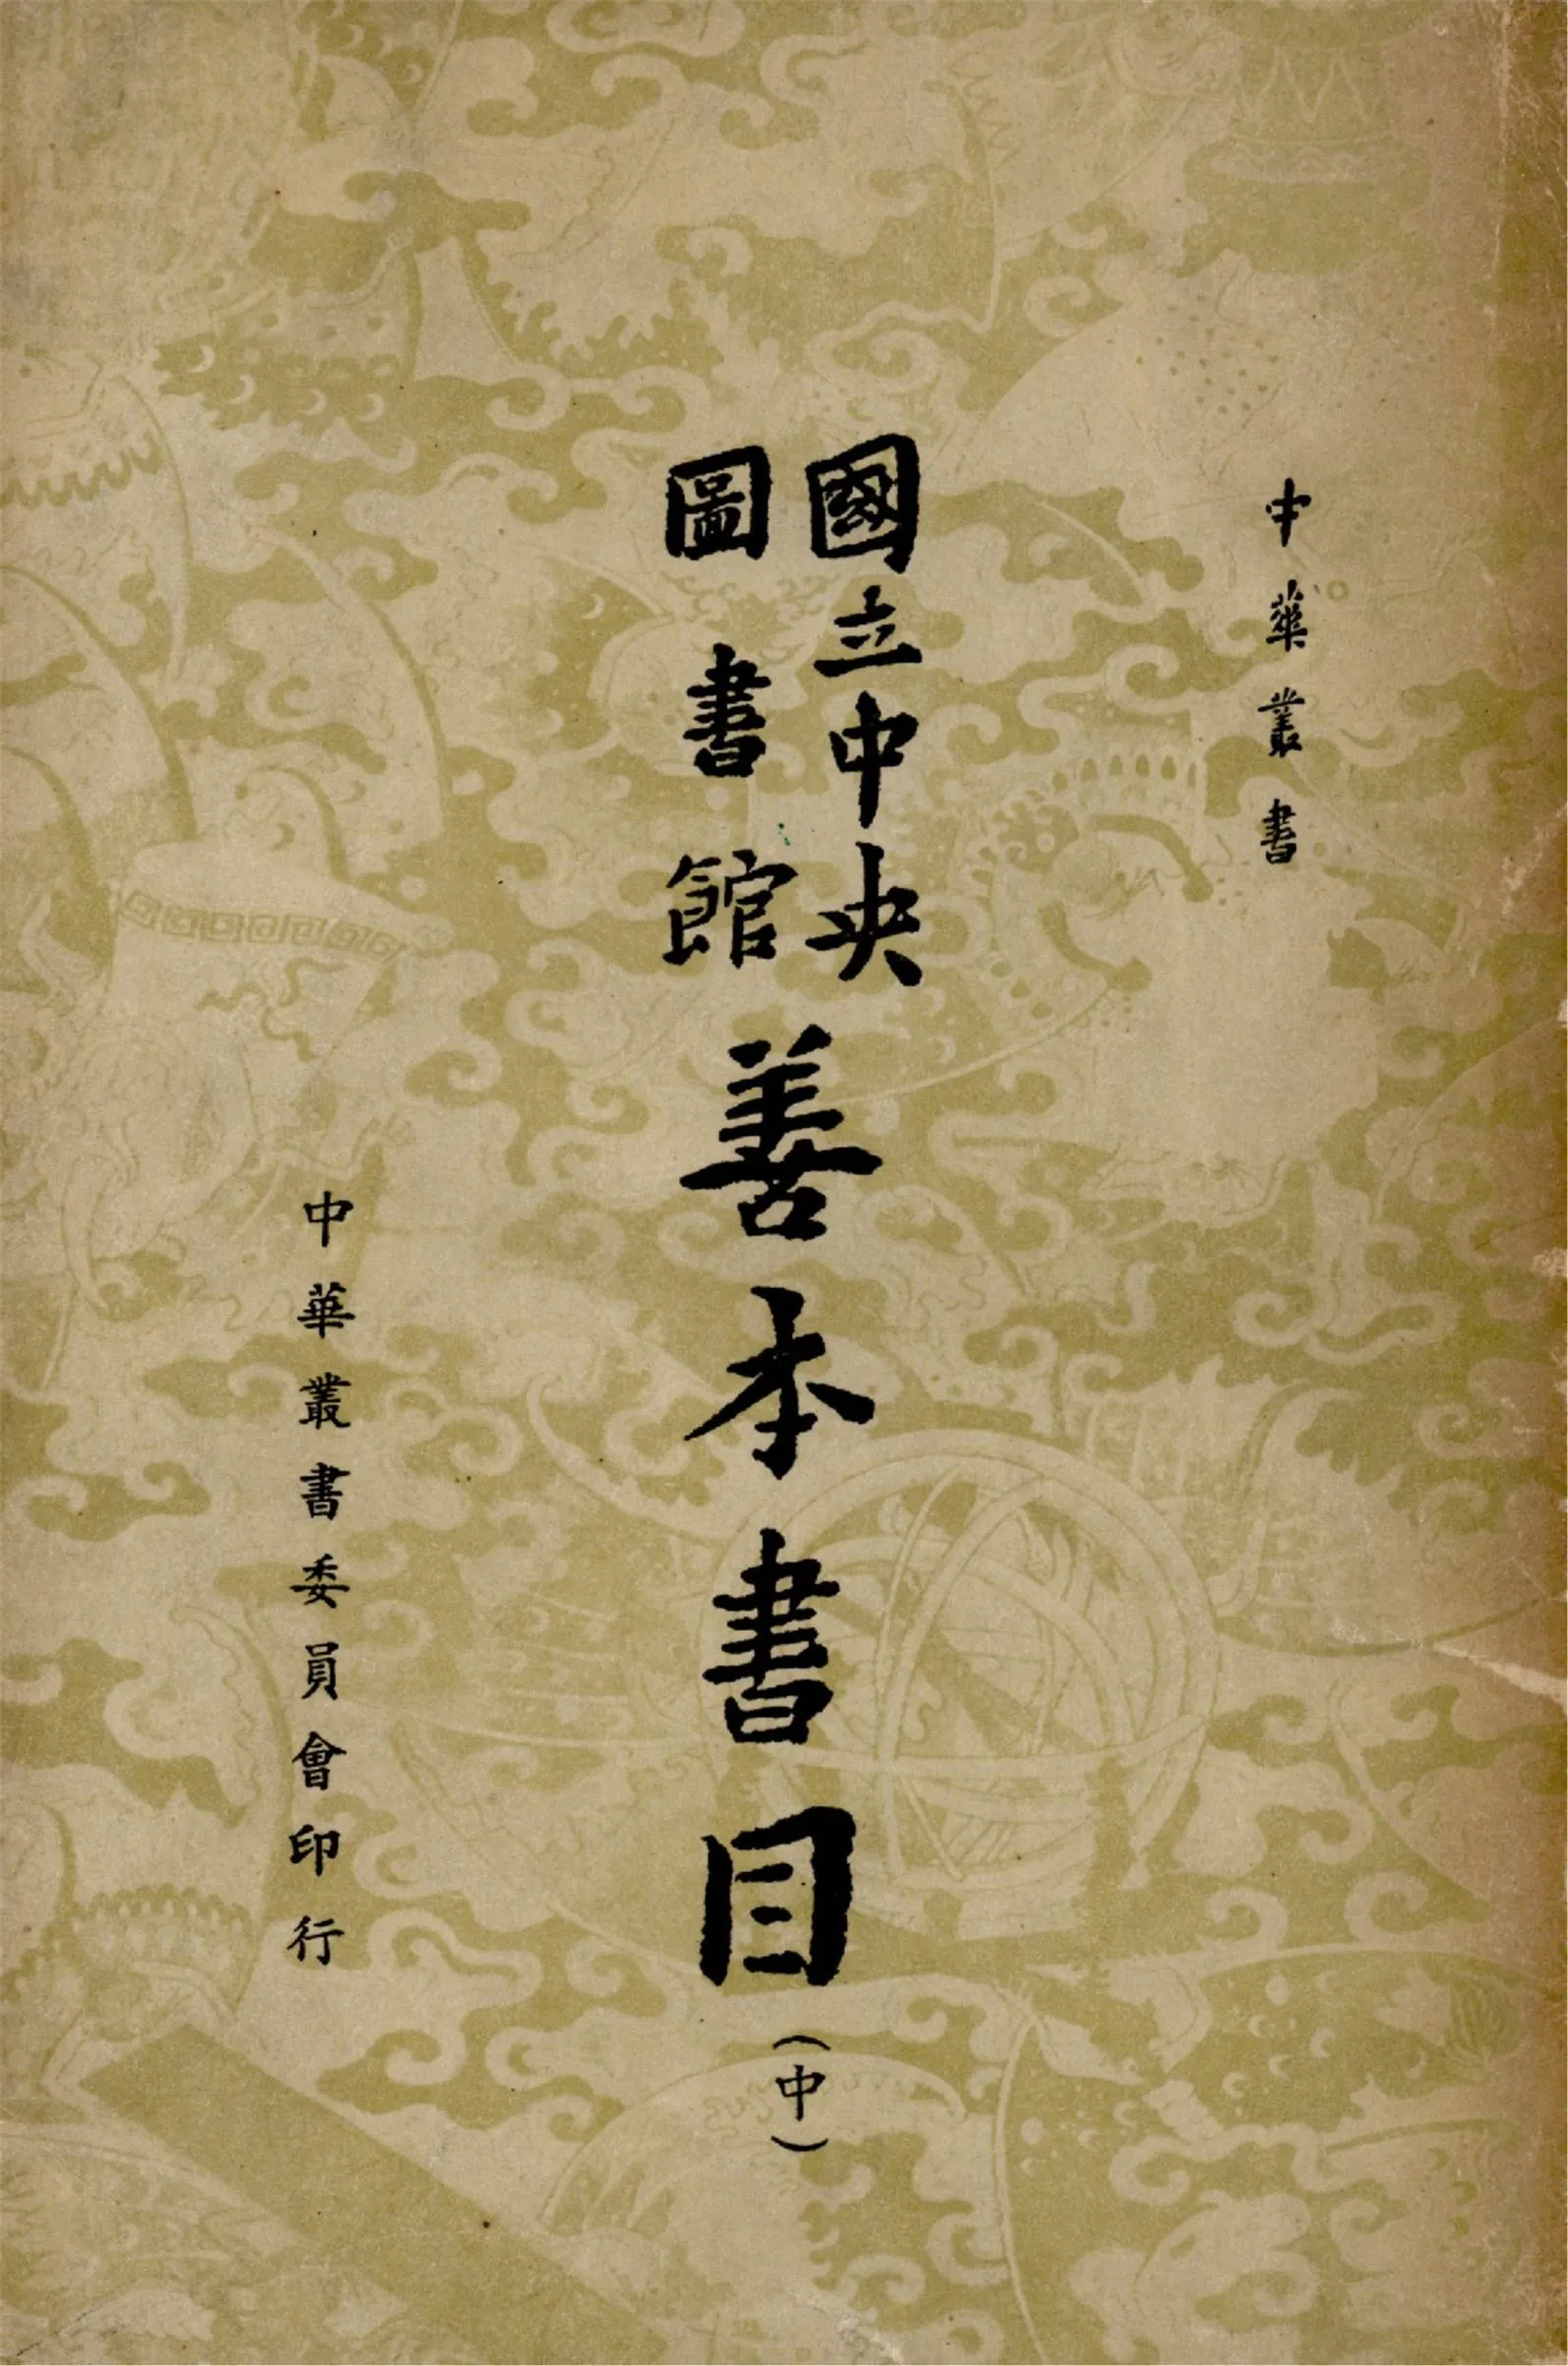 中華叢書
國立中央
圖書館
善本書目
（中）
中華叢書委員會印行